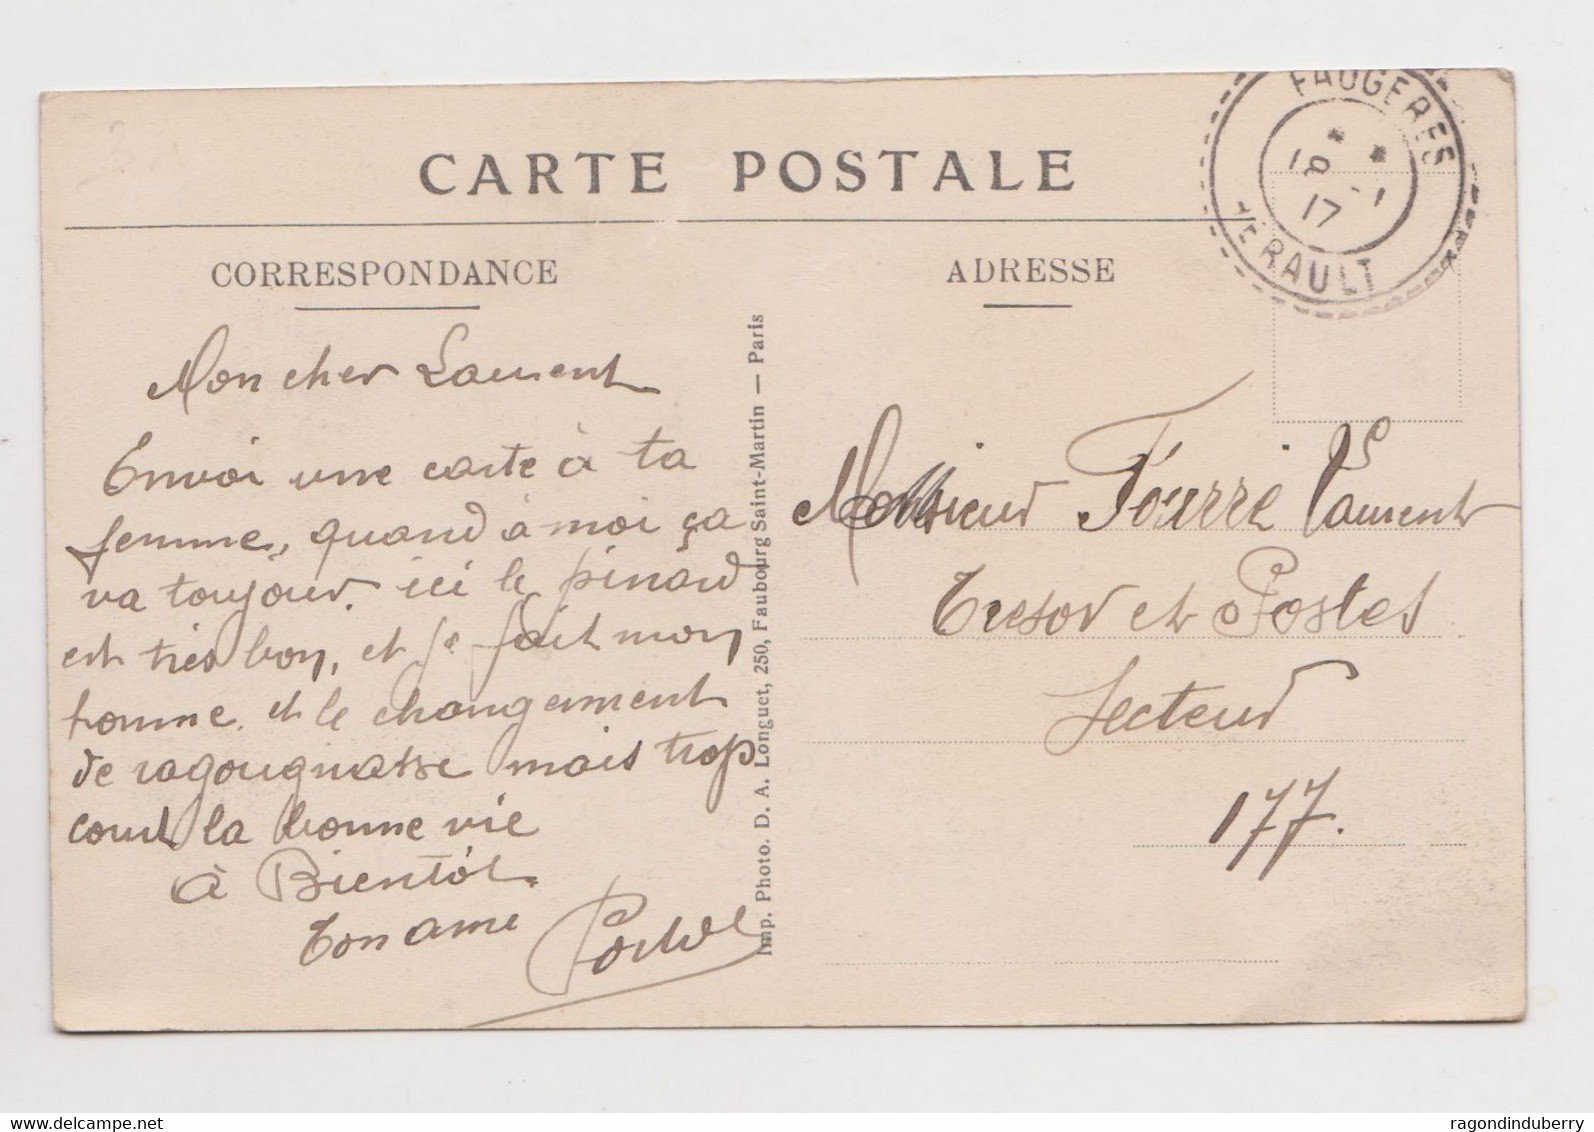 CARTE POSTALE
FAUGERES
18 - 1
17
HÉRAULT
CORRESPONDANCE
ADRESSE
Mon cher Laurent
Envoi une carte à ta
femme, quand à moi ça
va toujour. ici le pinard
est très bon, et je fait mon
homme. et le changement
de ragougnasse mais trop
court la bonne vie
à Bientôt.
Ton ami
Imp. Photo. D. A. Longuet, 250, Faubourg Saint-Martin — Paris
Monsieur Fourré Laurent
Tresor et Postes
Secteur
177.
delcampe.net
ragondinduberry